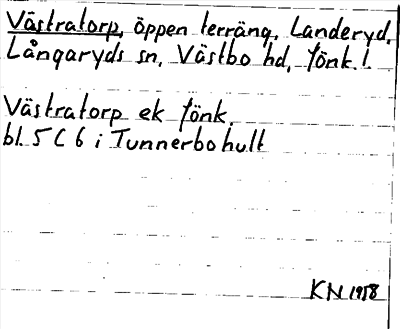 Västratorp, öppen terräng, Landeryd,
Långaryds sn, Västbo hd, Jönk. l.
Västratorp ek Jönk.
bl. 5 C 6 i Tunnerbohult
KN 1958